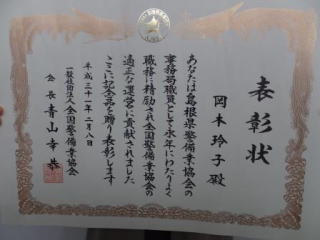 表彰状
岡本玲子殿
あなたは島根県警備業協会の
事務局職員として永年にわたりよく
職務に精励され全国警備業協会の
適正な運営に貢献されました
ここに記念品を贈り表彰します
平成三十一年二月八日
一般社団法人全国警備業協会
会長青山幸恭